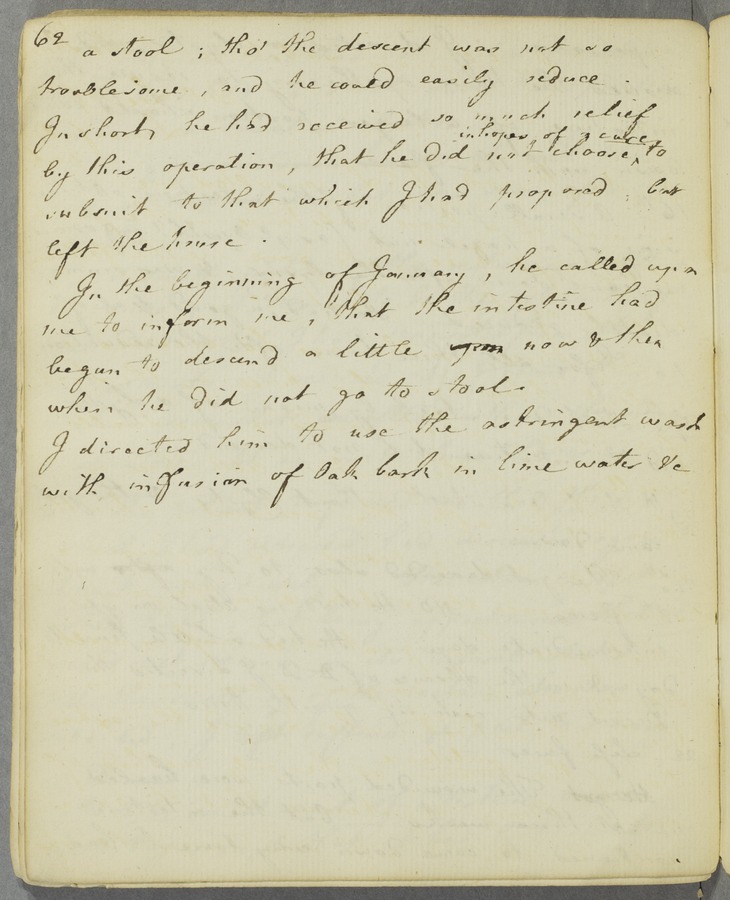 62
a stool ; tho' the descent was not so
troublesome , and he could easily reduce .
In short, he had received so much relief
in hopes of a cure,
by this operation, that he did not choose, to
submit to that which I had proposed ; but
left the house .
In the beginning of January, he called upon
me to inform me, that the intestine had
begun to descend a little now & then
when he did not go to stool.
I directed him to use the astringent wash
with infusion of Oak bark in lime water &c